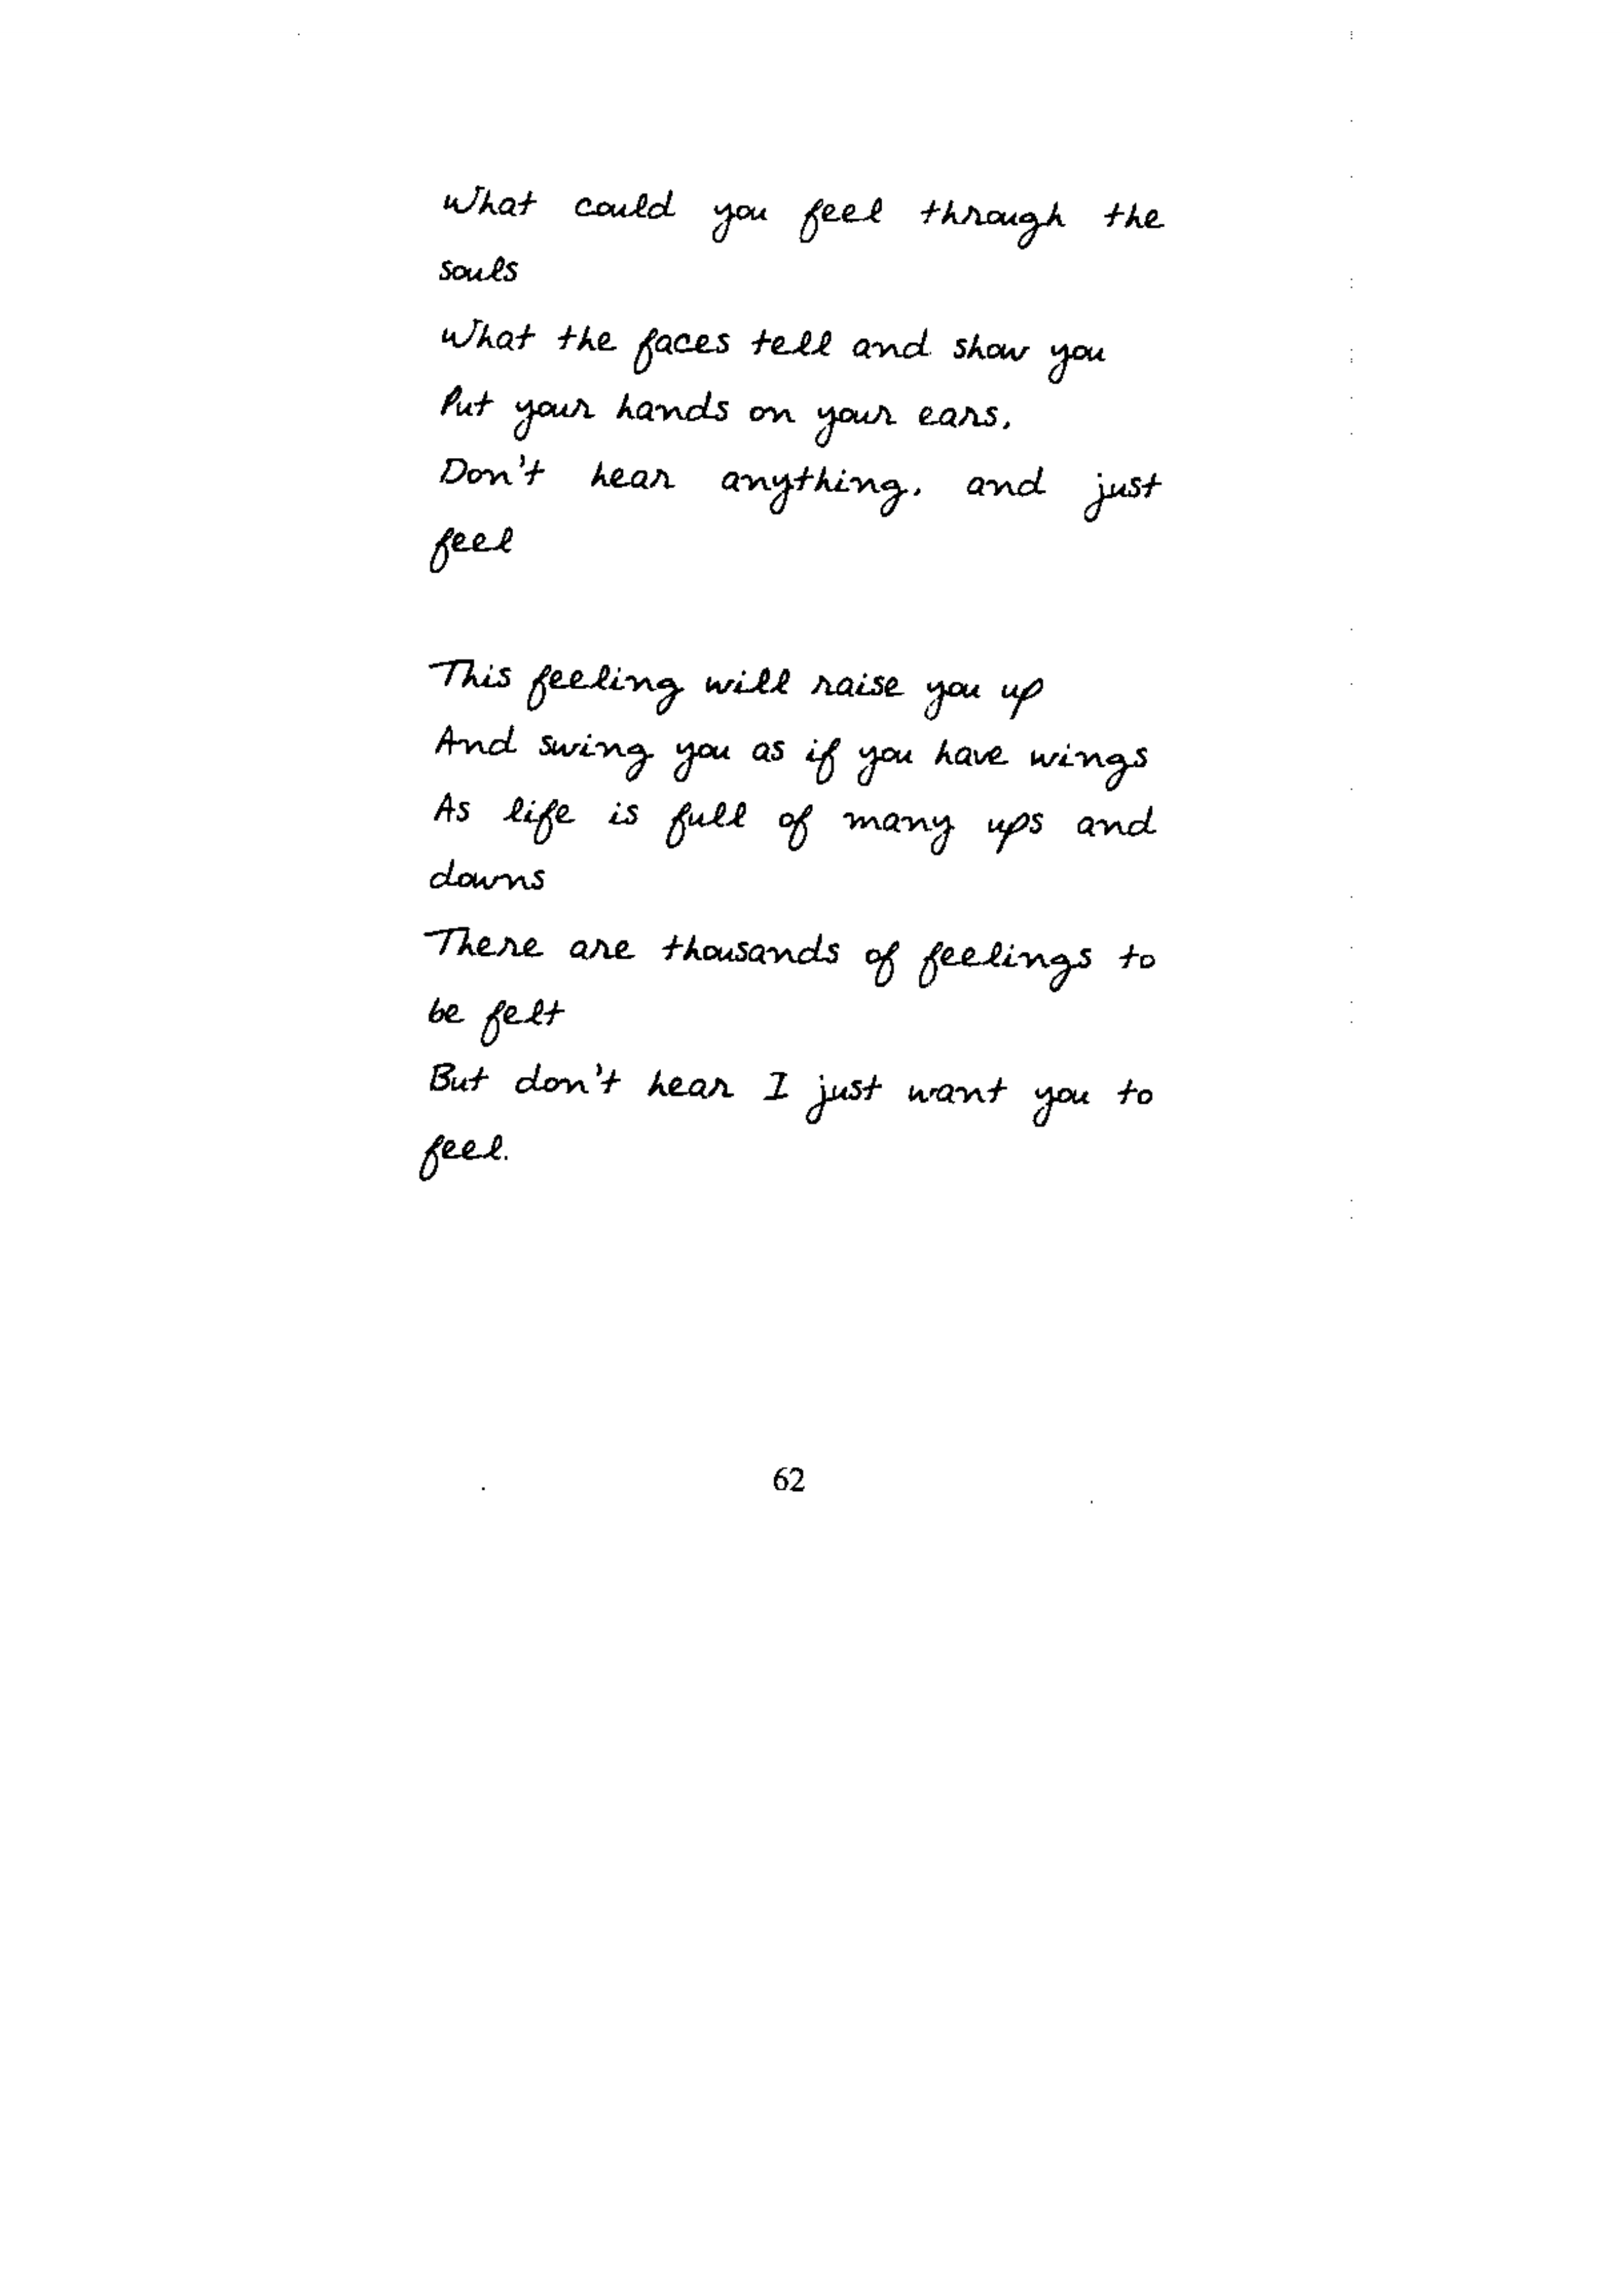 What could you feel through the
souls
What the faces tell and show you
Put your hands on your ears,
Don't hear anything, and just
feel
This feeling will raise you up
And swing you as if you have wings
As life is full of many ups and
downs
There are thousands of feelings to
be felt
But don't hear I just want you to
feel.
62